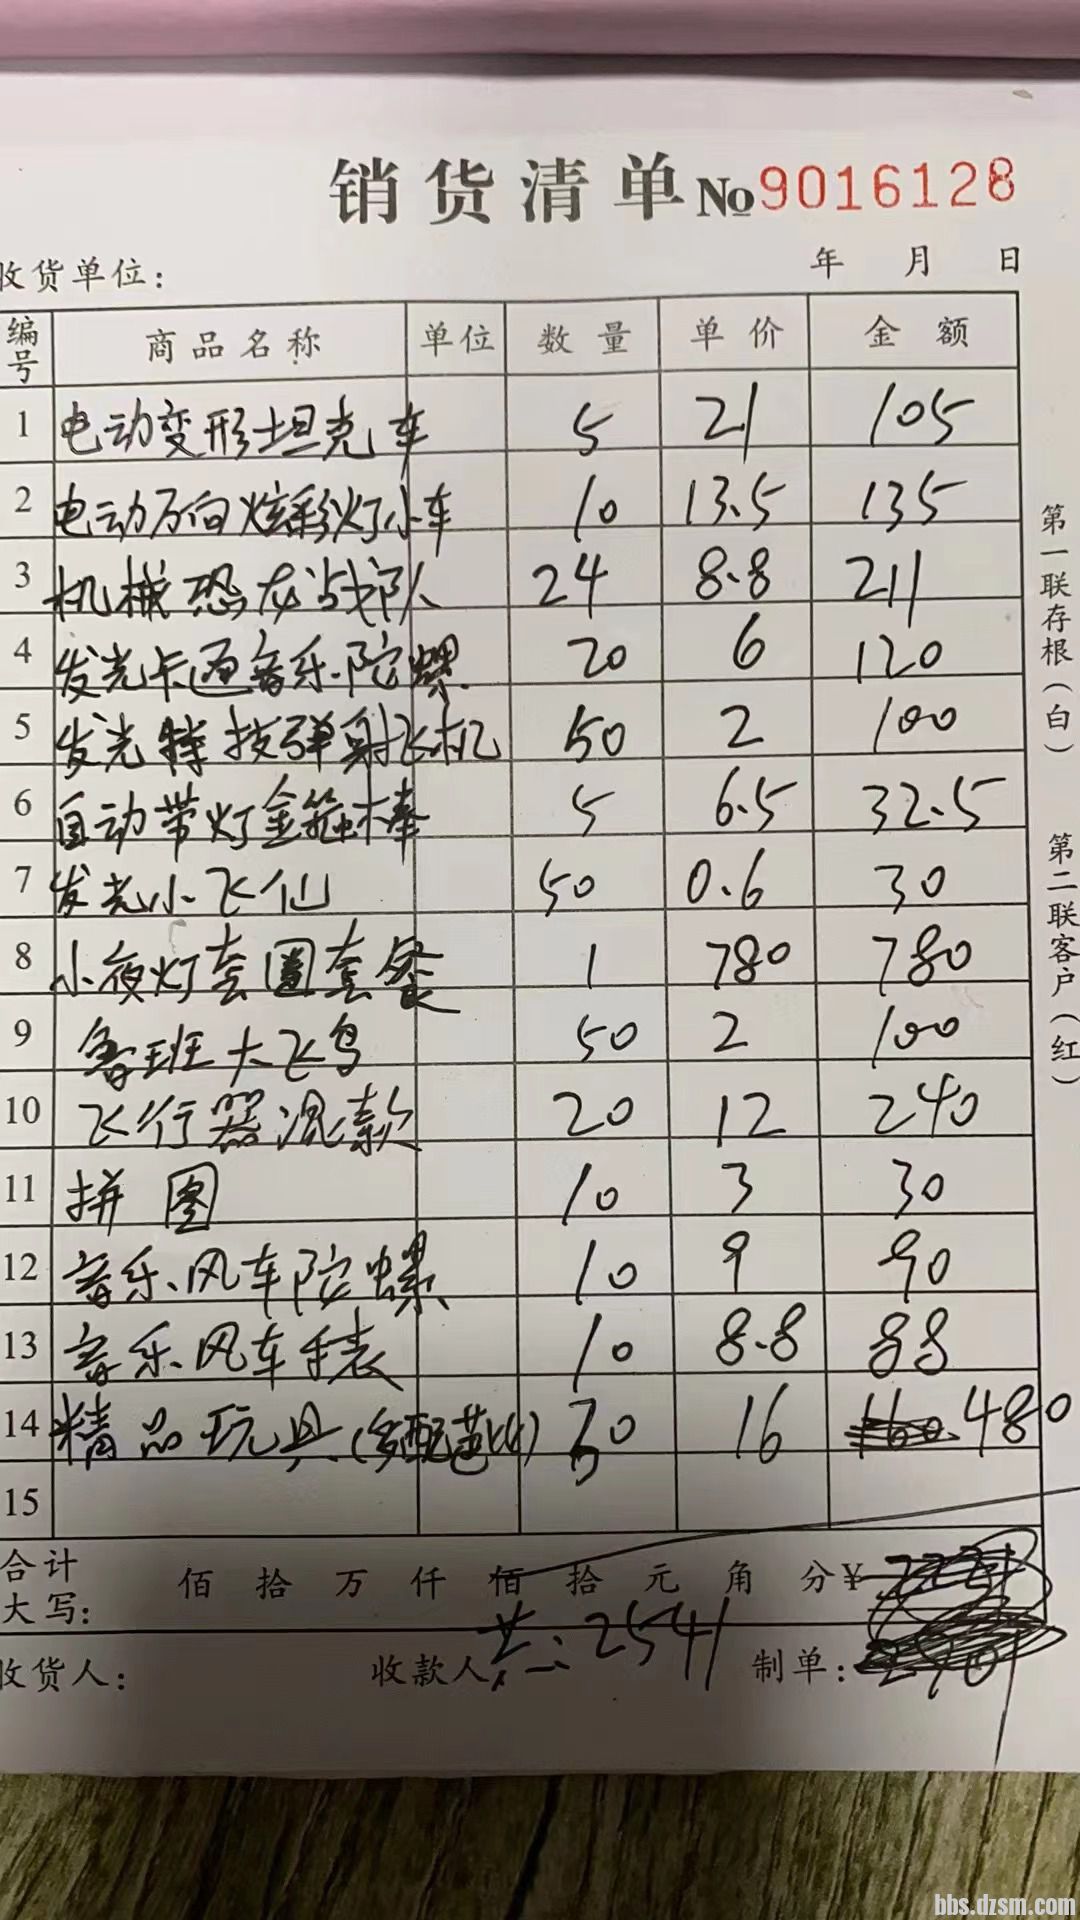 销货清单 №9016128
收货单位： 年 月 日
编号 商品名称 单位 数量 单价 金额
1 电动变形坦克车 5 21 105
2 电动万向炫彩灯小车 10 13.5 135
3 机械恐龙战队 24 8.8 211
4 发光卡通音乐陀螺 20 6 120
5 发光特技弹射飞机 50 2 100
6 自动带灯金箍棒 5 6.5 32.5
7 发光小飞仙 50 0.6 30
8 小夜灯套圈套餐 1 780 780
9 鲁班大飞鸟 50 2 100
10 飞行器混款 20 12 240
11 拼图 10 3 30
12 音乐风车陀螺 10 9 90
13 音乐风车手表 10 8.8 88
14 精品玩具(多配芭比) 30 16 480
15
合计大写： 佰 拾 万 仟 佰 拾 元 角 分 ¥
共：2541
收货人： 收款人： 制单：
第一联存根(白)
第二联客户(红)
bbs.dzsm.com